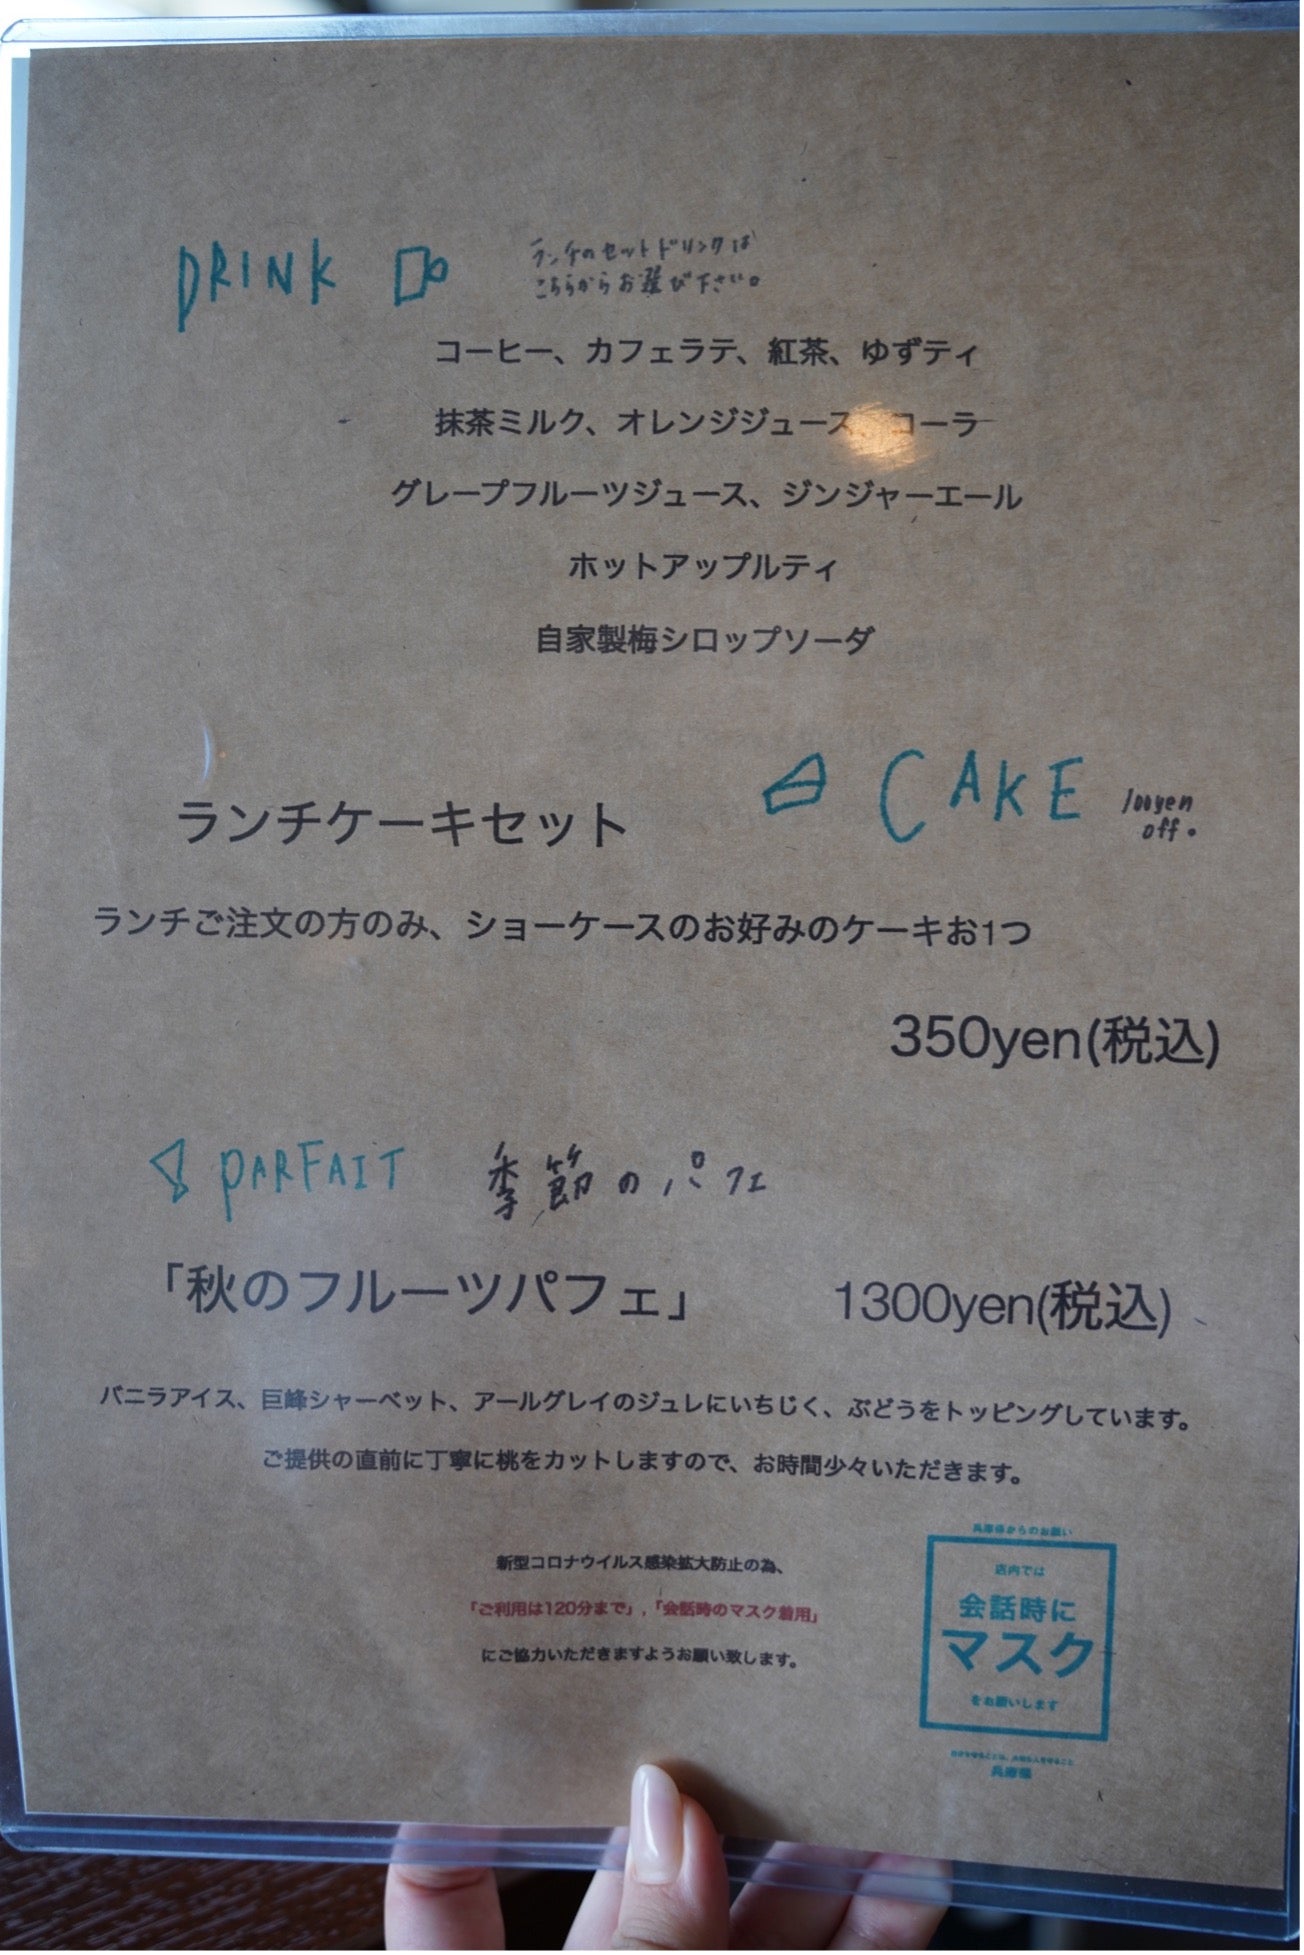 DRINK
ランチのセットドリンクは
こちらからお選び下さい。
コーヒー、カフェラテ、紅茶、ゆずティ
抹茶ミルク、オレンジジュース、コーラ
グレープフルーツジュース、ジンジャーエール
ホットアップルティ
自家製梅シロップソーダ
CAKE
100yen
off.
ランチケーキセット
ランチご注文の方のみ、ショーケースのお好みのケーキお1つ
350yen(税込)
PARFAIT 季節のパフェ
「秋のフルーツパフェ」 1300yen(税込)
バニラアイス、巨峰シャーベット、アールグレイのジュレにいちじく、ぶどうをトッピングしています。
ご提供の直前に丁寧に桃をカットしますので、お時間少々いただきます。
新型コロナウイルス感染拡大防止の為、
「ご利用は120分まで」,「会話時のマスク着用」
にご協力いただきますようお願い致します。
兵庫県からのお願い
店内では
会話時に
マスク
をお願いします
自分を守ることは、大切な人を守ること
兵庫県